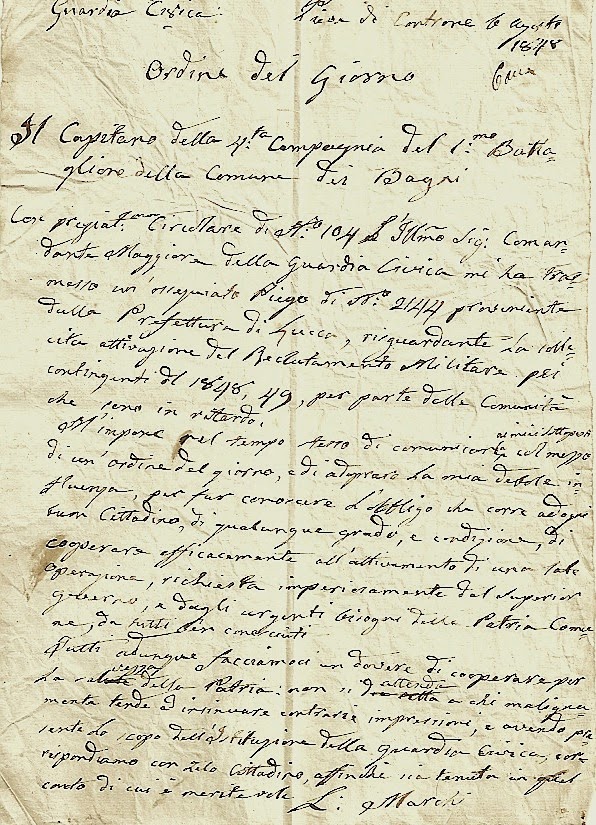 Guardia Civica
Pieve di Controne 6 Agosto
1848
Ordine del Giorno
Il Capitano della 4.ta Compagnia del 1.mo Batta-
glione della Comune dei Bagni
Con pregiat. Circolare di N.ro 104 L'Illmo Sig: Coman-
dante Maggiore della Guardia Civica mi ha tras-
messo un'ossequiato Piego di N.ro 2144 proveniente
dalla Prefettura di Lucca, risguardante la solle-
cita attivazione del Reclutamento Militare pei
contingenti del 1848, 49, per parte delle Comunità
che sono in ritardo.
M'impone nel tempo stesso di comunicarla ai miei sottoposti col mezzo
di un'ordine del giorno, e di adoprare la mia debole in-
fluenza, per far conoscere l'obbligo che corre ad ogni
buon Cittadino, di qualunque grado, e condizione, di
cooperare efficacemente all'attivamento di una tale
operazione, richiesta imperiosamente dal Superior
governo, e dagli urgenti bisogni della Patria Comu-
ne, da tutti ben conosciuti
Tutti adunque facciamoci un dovere di cooperare per
la salvezza della Patria: non si attenda a chi maligna-
mente tende ad insinuare contrarie impressioni, e avendo pre-
sente lo scopo dell'Istituzione della guardia Civica, cor-
rispondiamo con zelo Cittadino, affinchè sia tenuta in quel
conto di cui è meritevole L: Marchi